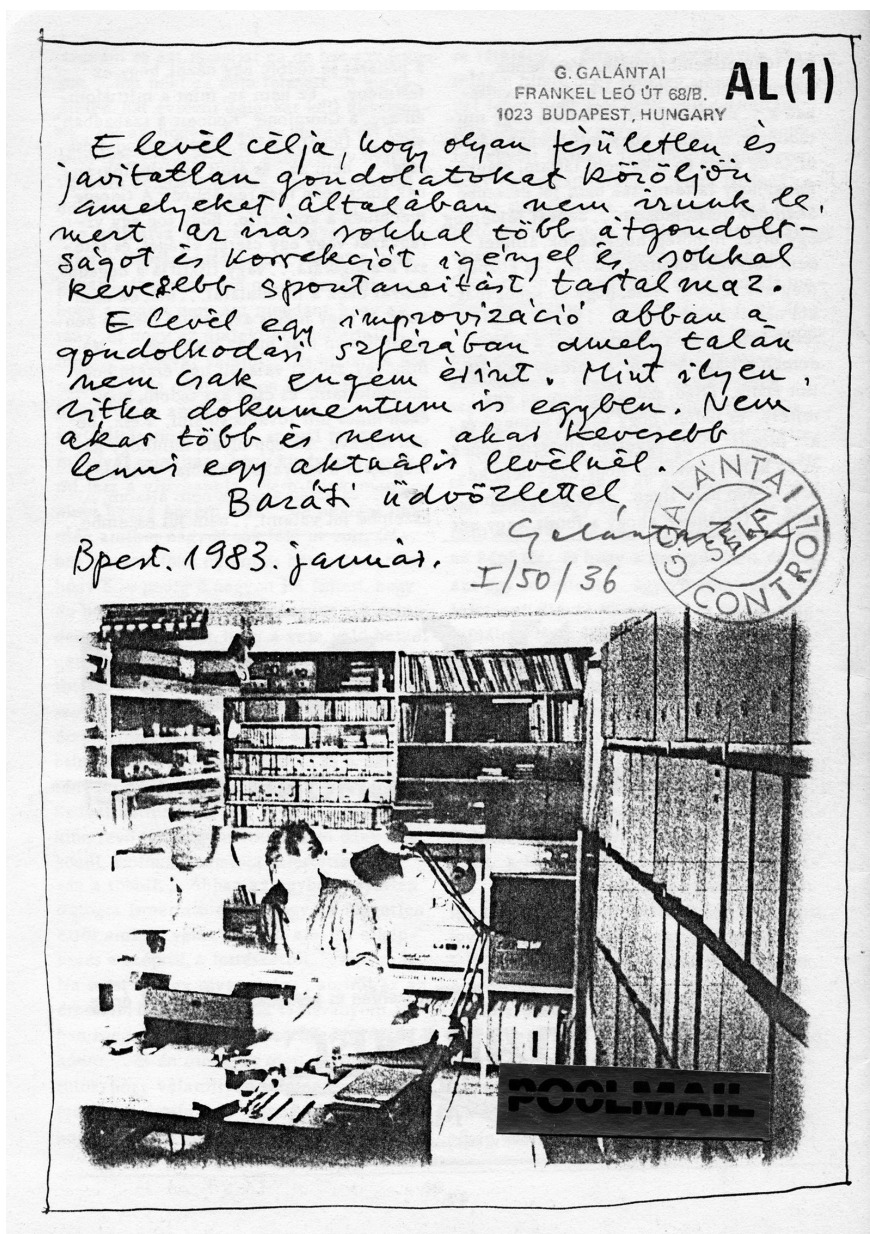 G. GALÁNTAI
FRANKEL LEÓ ÚT 68/B.
1023 BUDAPEST, HUNGARY
AL(1)
E levél célja, hogy olyan fésületlen és
javitatlan gondolatokat közöljön
amelyeket általában nem irunk le,
mert az irás sokkal több átgondolt-
ságot és korrekciót igényel és sokkal
kevesebb spontaneitást tartalmaz.
E levél egy improvizáció abban a
gondolkodási szférában amely talán
nem csak engem érint. Mint ilyen,
ritka dokumentum is egyben. Nem
akar több és nem akar kevesebb
lenni egy aktuális levélnél.
Baráti üdvözlettel
Galántai
Bpest. 1983. január.
I/50/36
G. GALÁNTAI
SELF
CONTROL
POOLMAIL